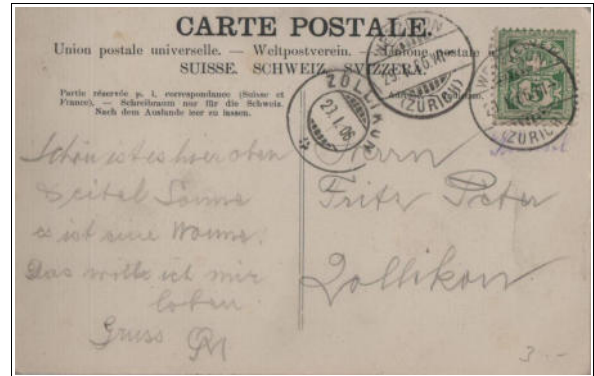 CARTE POSTALE.
Union postale universelle. — Weltpostverein. — Unione postale
SUISSE. SCHWEIZ. SVIZZERA.
Partie réservée p. l. correspondance (Suisse et
France). — Schreibraum nur für die Schweiz.
Nach dem Auslande leer zu lassen.
ZOLLIKON
29.I.06
(ZÜRICH)
(ZÜRICH)
5
Schön ist es hier oben
Sonne
es ist eine Wonne!
Das will ich mir
loben.
Gruss
Herrn
Fritz Peter
Zollikon
3.-